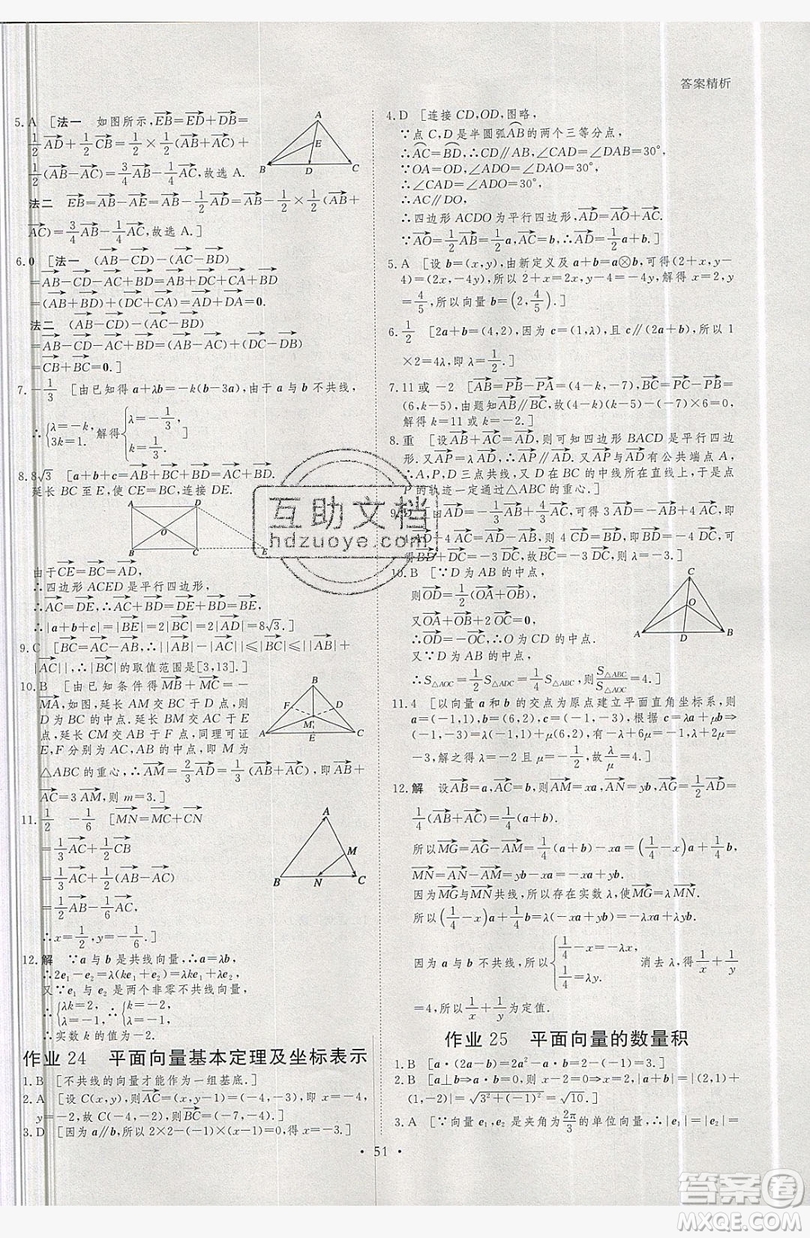 答案精析
5.A [法一 如图所示,EB=ED+DB=
1/2AD+1/2CB=1/2×1/2(AB+AC)+
1/2(AB-AC),故选A.
法二 EB=AB-AE=AB-1/2AD=AB-1/2×1/2(AB+
AC)=3/4AB-1/4AC,故选A.]
6.0 [法一 (AB-CD)-(AC-BD)
=AB-CD-AC+BD=AB+DC+CA+BD
=(AB+BD)+(DC+CA)=AD+DA=0.
法二 (AB-CD)-(AC-BD)
=AB-CD-AC+BD=(AB-AC)+(DC-DB)=
CB+BC=0.]
7.-1/3 [由已知得a+λb=-k(b-3a),由于a与b不共线,
∴{λ=-k, 3k=1. 解得{λ=-1/3, k=1/3.]
8.8√3 [a+b+c=AB+BC+BD=AC+BD.
延长BC至E,使CE=BC,连接DE.
A D O B C E
由于CE=BC=AD,
∴四边形ACED是平行四边形,
∴AC=DE,∴AC+BD=DE+BD=BE,
∴|a+b+c|=|BE|=2|BC|=2|AD|=8√3.]
9.C [||AB|-|AC||≤|BC|≤|AB|+
|AC||,∴|BC|的取值范围是[3,13].]
10.B [由已知条件得MB+MC=-
MA,如图,延长AM交BC于D点,
则D为BC的中点.延长BM交AC于
E点,延长CM交AB于F点,同理可证
E,F分别为AC,AB的中点,即M为
△ABC的重心,AM=2/3AD=1/3(AB+AC),即AB+
AC=3AM,则m=3.]
11.1/2 -1/6 [MN=MC+CN
=1/3AC+1/2CB
=1/3AC+1/2(AB-AC)
=1/2AB-1/6AC
∴x=1/2,y=-1/6.]
12.解 ∵a与b是共线向量,∴a=λb,
∴2e₁-e₂=λ(ke₁+e₂)=λke₁+λe₂,
又∵e₁,e₂是两个非零不共线向量,
∴{λk=2, λ=-1, ∴{k=-2, λ=-1.
∴实数k的值为-2.
作业24 平面向量基本定理及坐标表示
1.B [不共线的向量才能作为一组基底.]
2.A [设C(x,y),则AC=(x,y-1)=(-4,-3),所以x=-4,
y=-2,故C(-4,-2),则BC=(-7,-4).]
3.D [因为a∥b,所以2×2-(-x)(x-1)=0,
4.D [连接CD,OD,图略,
∵点C,D是半圆弧AB的两个三等分点,
∴AC=BD,∴∠CAD=∠DAB=30°,
∵OA=OD,∴∠ADO=∠DAO=30°,
∴AC∥DO,
∴四边形ACDO为平行四边形,AD=AO+AC.
∵AO=1/2AB=1/2a,AC=b,∴AD=1/2a+b.]
5.A [设b=(x,y),由新定义及a+b=a⊗b,可得(2+x,y-
4)=(2x,-4y),所以2+x=2x,y-4=-4y,解得x=2,y=
4/5,所以向量b=(2,4/5).]
6.1/2 [2a+b=(4,2),因为c=(1,λ),且c∥(2a+b),所以1
×2=4λ,即λ=1/2.]
7.11或-2 [AB=PB-PA=(4-k,-7),BC=PC-PB=
(6,k-5),由题知AB∥BC,故(4-k)(k-5)-(-7)×6=0,
解得k=11或k=-2.]
8.重 [设AB+AC=AD,则可知四边形BACD是平行四边
形.又AP=λ(AB+AC),∴AP∥AD,AP与AD有公共端点A,
∴A,P,D三点共线.又D在BC的中线所在直线上,于是点
P的轨迹一定通过△ABC的重心.]
10.B [∵D为AB的中点,
则OD=1/2(OA+OB),
又OA+OB+2OC=0,
∴OD=-OC,∴O为CD的中点.
又∵D为AB的中点,
11.4 [以向量a和b的交点为原点建立平面直角坐标系,则
a=(-1,1),b=(6,2),c=(-1,-3),根据c=λa+μb⇒
(-1,-3)=λ(-1,1)+μ(6,2),有-λ+6μ=-1,λ+2μ=
-3,解之得λ=-2且μ=-1/2,故λ/μ=4.]
12.解 设AB=a,AC=b,则AM=xa,AN=yb,AG=1/2AD
=1/4(AB+AC)=1/4(a+b).
∴MG=AG-AM=1/4(a+b)-xa=(1/4-x)a+1/4b,
MN=AN-AM=yb-xa=-xa+yb.
因为MG与MN共线,所以存在实数λ,使MG=λMN.
所以(1/4-x)a+1/4b=λ(-xa+yb)=-λxa+λyb.
因为a与b不共线,所以{1/4-x=-λx, 1/4=λy. 消去λ,得1/x+1/y
=4,所以1/x+1/y为定值.
作业25 平面向量的数量积
1.B [a·(2a-b)=2a²-a·b=2-(-1)=3.]
2.B [∵a⊥b,∴a·b=0,即x-2=0,解得x=2,∴|a+b|=|(2,1)+
(1,-2)|=√(3²+(-1)²)=√10.]
3.A [∵向量e₁,e₂是夹角为2π/3的单位向量,∴|e₁|=|e₂|=
• 51 •
互助文档
hdzuoye.com
答案圈
MXQE.COM